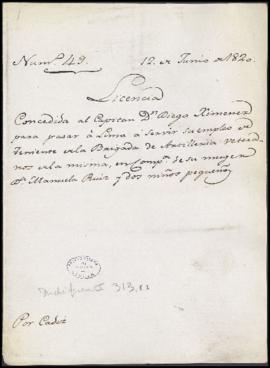 Num.º 49. 12. de Junio de 1820.
Licencia
Concedida al Capitan D.n Diego Ximenez
para pasar á Lima á servir su empleo de
Teniente de la Brigada de Artilleria vetera-
nos de la misma, en comp.a de su muger
D.a Manuela Ruiz y dos niños pequeños
Indiferente 313,
Por Cadiz